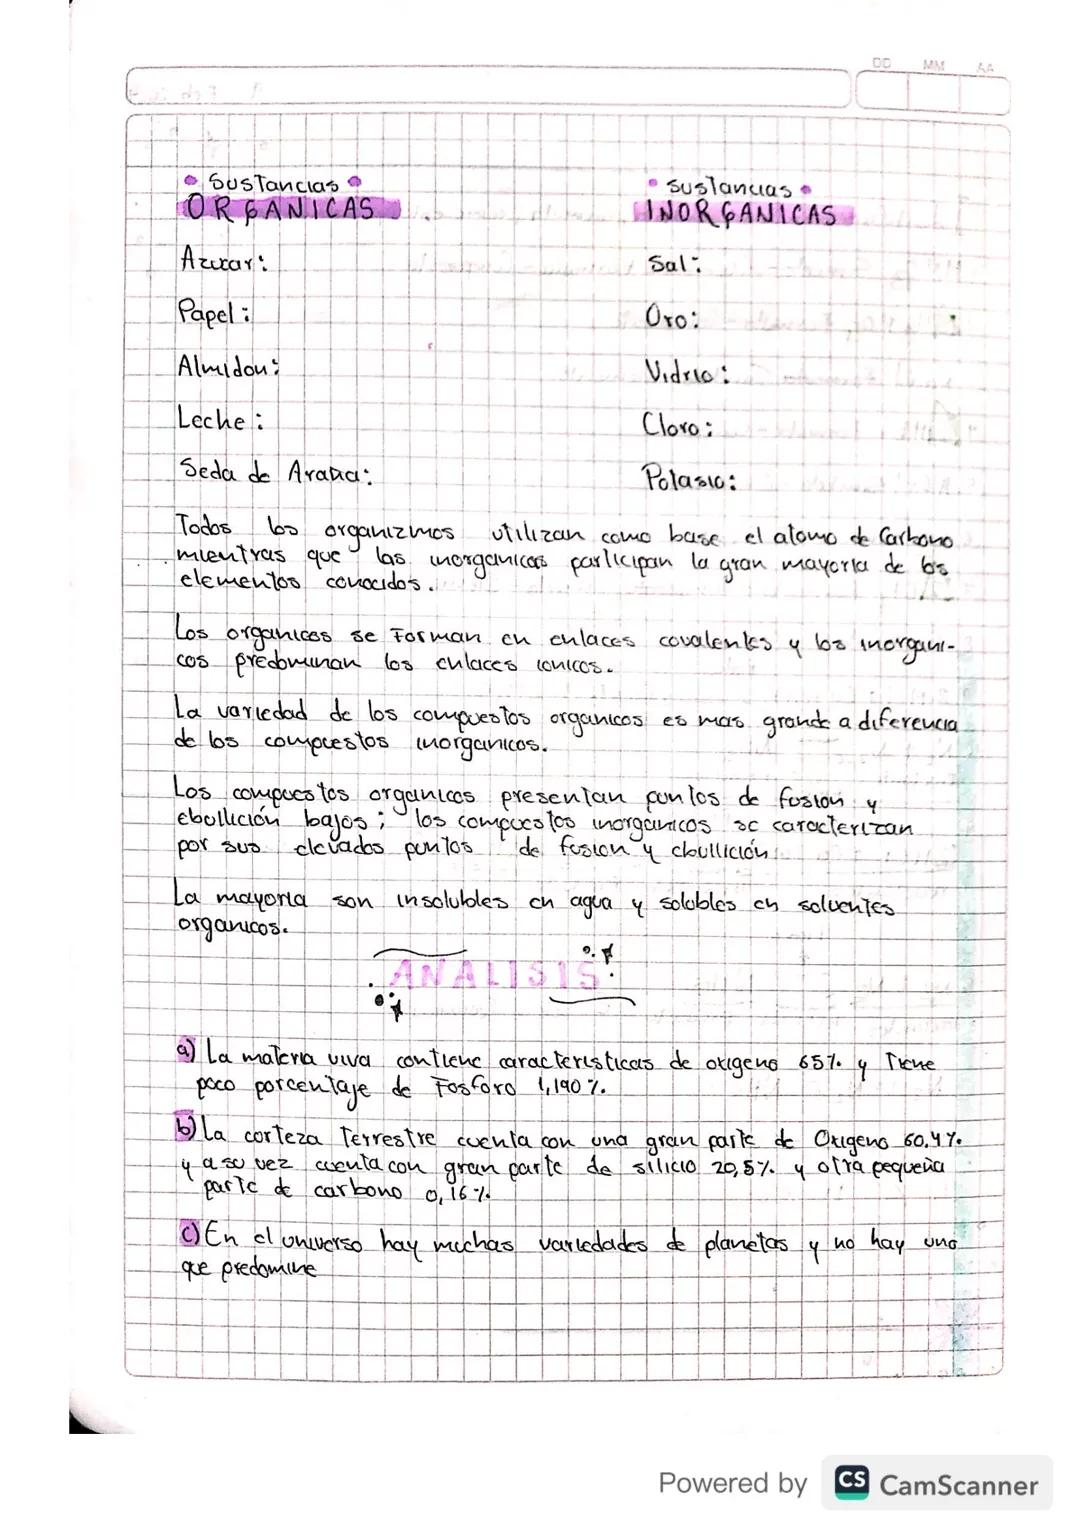 DD MM AA
• Sustancias •
ORGANICAS
• sustancias •
INORGANICAS
Azucar:
Sal:
Papel:
Oro:
Almidon:
Vidrio:
Leche:
Cloro:
Seda de Araña:
Potasio:
Todos los organizmos utilizan como base el atomo de Carbono
mientras que las inorganicas participan la gran mayoria de los
elementos conocidos.
Los organicos se Forman en enlaces covalentes y los inorgani-
cos predominan los enlaces ionicos.
La variedad de los compuestos organicos es mas grande a diferencia
de los compuestos inorganicos.
Los compuestos organicos presentan puntos de fusion y
ebollición bajos; los compuestos inorganicos se caracterizan
por sus elevados puntos de fusion y ebullición
La mayoria son insolubles en agua y solubles en solventes
organicos.
ANALISIS
a) La materia viva contiene caracteristicas de oxigeno 65% y Tiene
poco porcentaje de Fosforo 1,190%.
b) La corteza Terrestre cuenta con una gran parte de Oxigeno 60.4%.
y a su vez cuenta con gran parte de silicio 20,5% y otra pequeña
parte de carbono 0,16%.
c) En el universo hay muchas variedades de planetas y no hay uno
que predomine
Powered by CS CamScanner